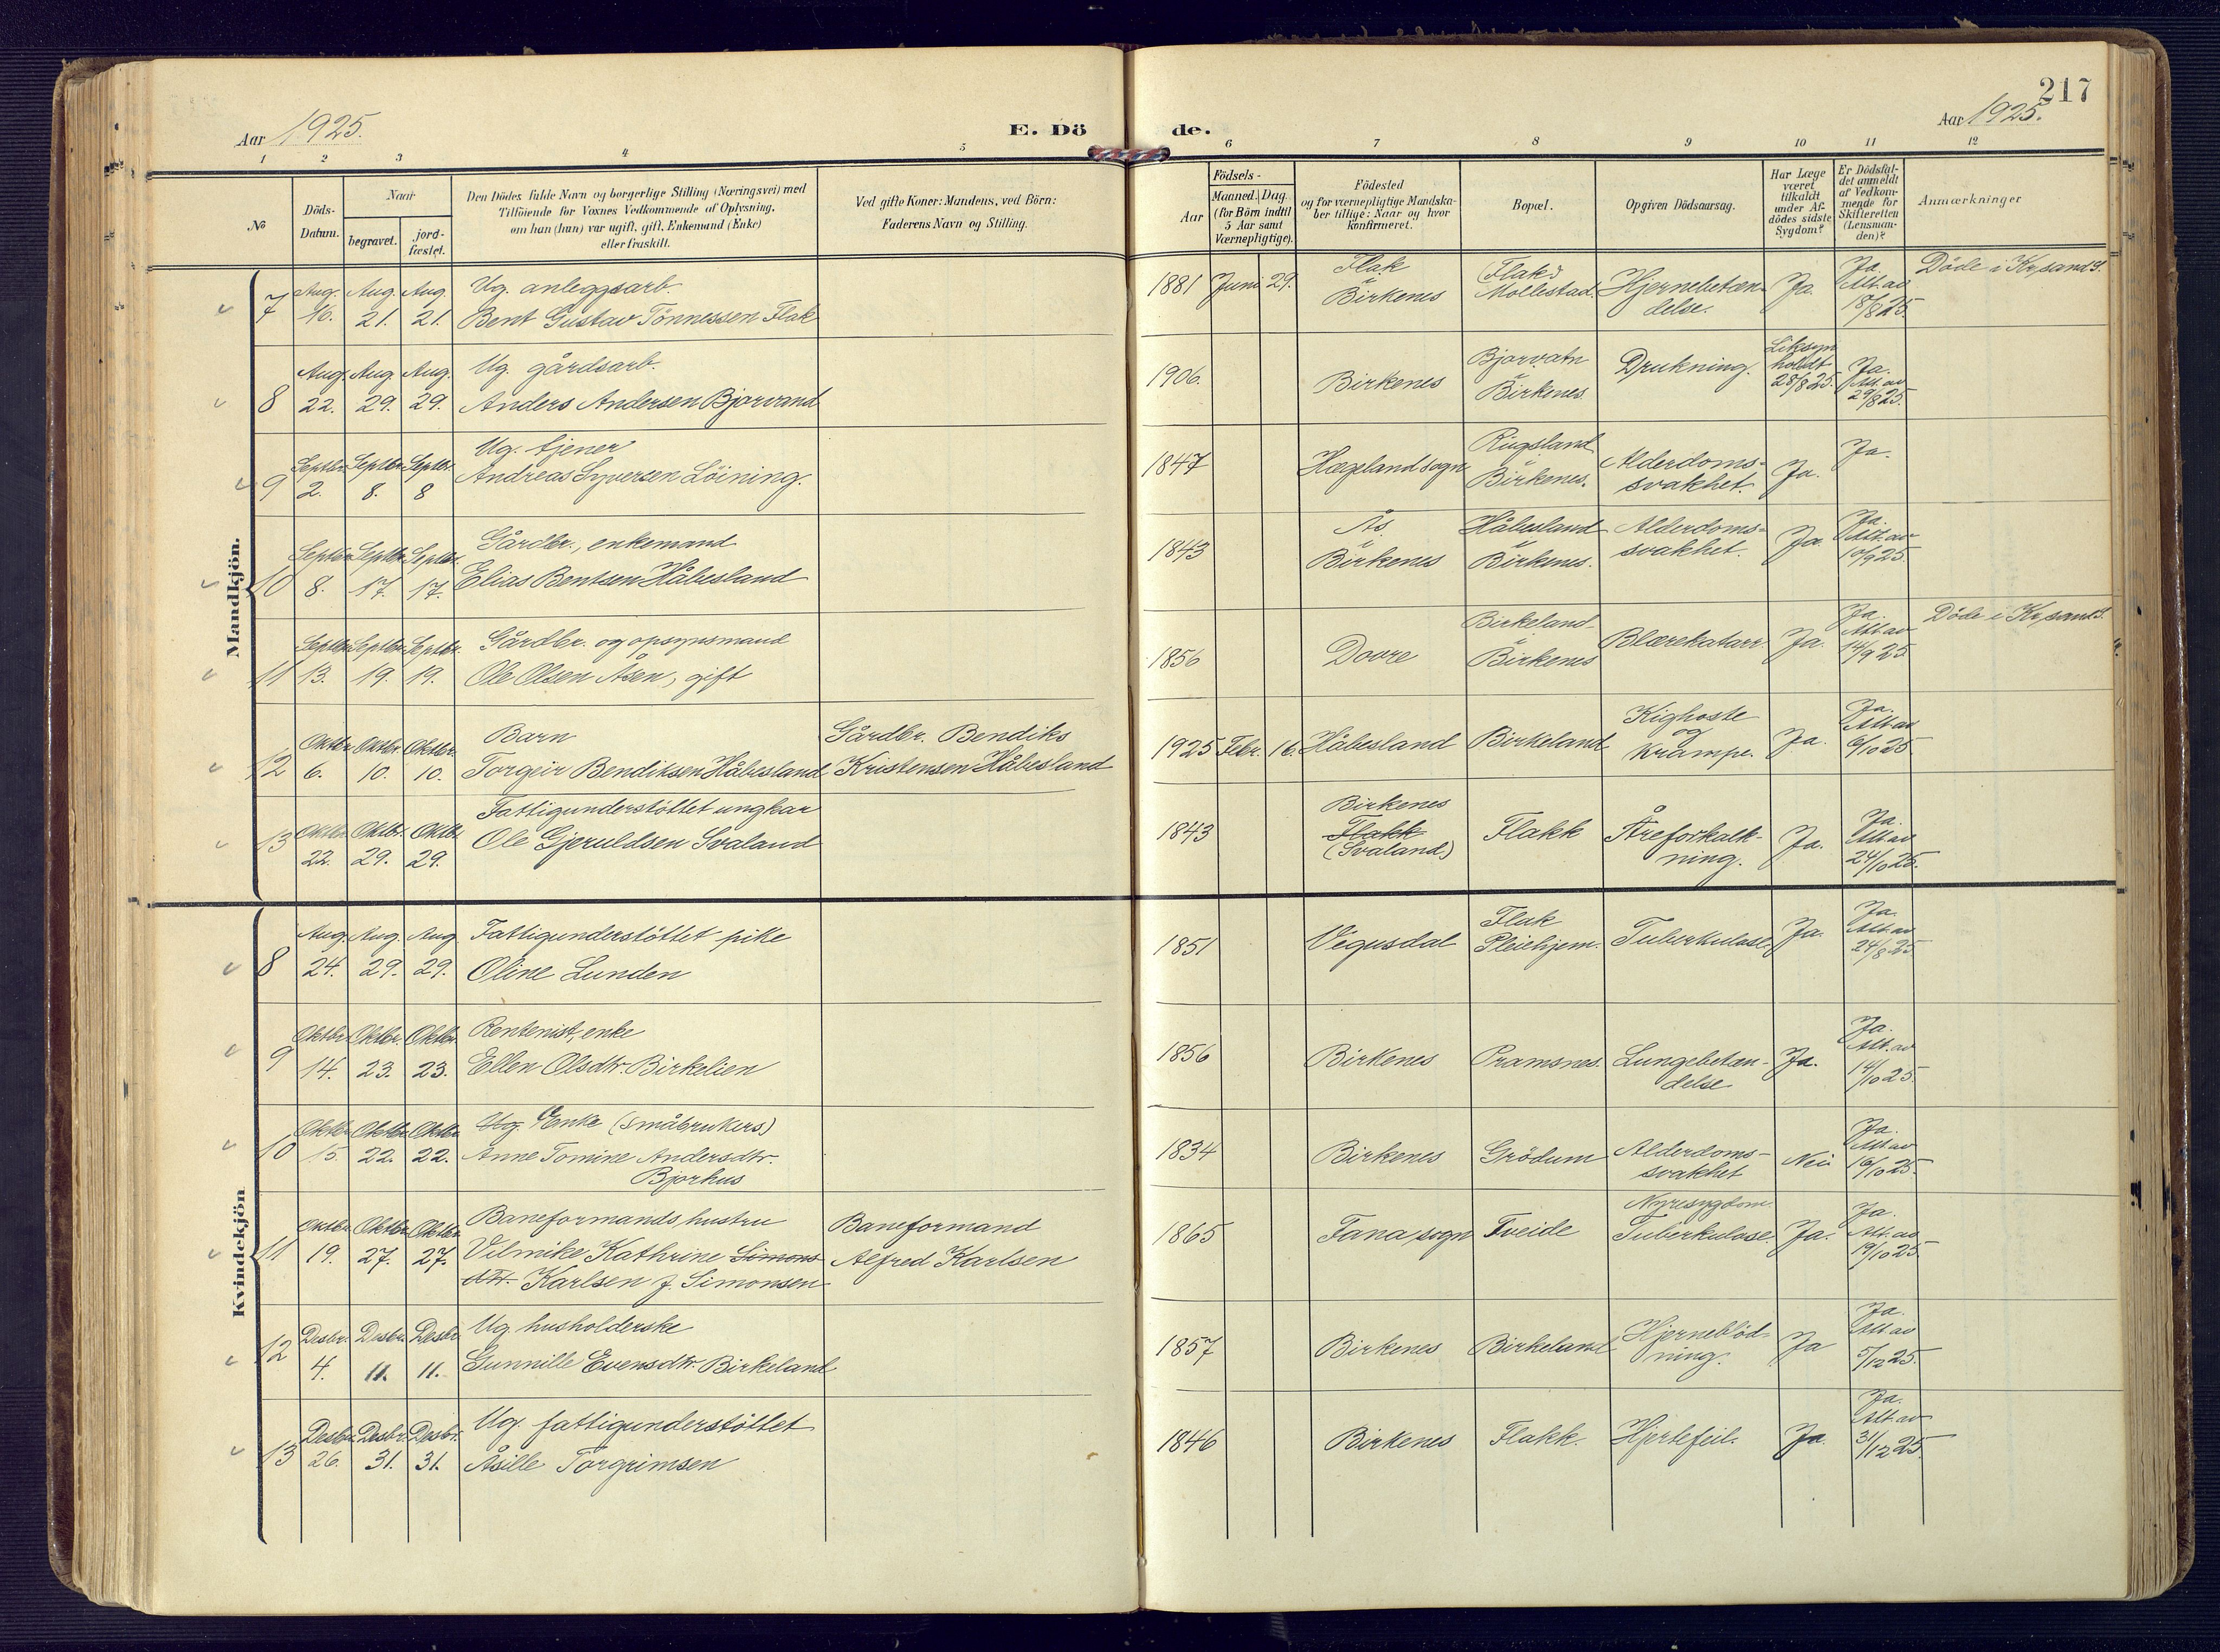 217
Aar 1925.
E. Dö
de.
Aar 1925.
1 2 3 4 5
6 7 8 9 10 11 12
No
Döds-
Datum.
Naar
begravet.
jord-
fæstet.
Den Dödes fulde Navn og borgerlige Stilling (Næringsvei) med
Tilföiende for Voxnes Vedkommende af Oplysning,
om han (hun) var ugift, gift, Enkemand (Enke)
eller fraskilt.
Ved gifte Koner: Mandens, ved Börn:
Faderens Navn og Stilling.
Födsels-
Aar
Maaned. Dag.
(for Börn indtil
5 Aar samt
Værnepligtige).
Födested
og for værnepligtige Mandska-
ber tillige: Naar og hvor
konfirmeret.
Bopæl.
Opgiven Dödsaarsag.
Har Læge
været
tilkaldt
under Af-
dödes sidste
Sygdom?
Er Dödsfal-
det anmeldt
af Vedkom-
mende for
Skifteretten
(Lensman-
den)?
Anmærkninger
Mandkjön.
7
Aug. 16.
Aug. 21.
Aug. 21.
Ug. anleggsarb.
Bent Gustav Tönnessen Flak
1881 Juni 29.
Flak
i
Birkenes
(Flak)
Mollestad.
Hjernebetæn-
delse.
Ja.
Ja
Att. av
18/8 25.
Döde i Krsand S.
8
Aug. 22.
Aug. 29.
Aug. 29.
Ug. gårdsarb.
Anders Andersen Bjorvand
1906.
Birkenes
Bjorvatn
i
Birkenes
Drukning.
Liksyn
holdt
28/8 25.
Ja.
Att. av
29/8 25.
9
Septbr. 2.
Septbr. 8.
Septbr. 8
Ug. tjener
Andreas Syversen Löining.
1847
Hægeland sogn
Rugsland
i
Birkenes.
Alderdoms-
svakhet.
Ja.
Ja.
10
Septbr. 8.
Septbr. 17.
Septbr. 17.
Gårdbr., enkemand
Elias Bentsen Håbesland
1843
Ås.
i
Birkenes
Håbesland
i
Birkenes.
Alderdoms-
svakhet.
Ja.
Ja.
Att. av
10/9 25.
11
Septbr. 13.
Septbr. 19.
Septbr. 19.
Gårdbr. og opsynsmand
Ole Olsen Åsen, gift
1856
Dovre
Birkeland
i
Birkenes
Blærekatarr.
Ja.
Ja.
Att. av
14/9 25
Döde i Krsand S.
12
Oktbr. 6.
Oktbr. 10.
Oktbr. 10.
Barn
Torgeir Bendiksen Håbesland
Gårdbr. Bendiks
Kristensen Håbesland
1925 Febr. 16.
Håbesland
Birkeland
Kighoste
og
Krampe.
Ja.
Ja.
Att. av
6/10 25
13
Oktbr. 22.
Oktbr. 29.
Oktbr. 29.
Fattigunderstöttet ungkar
Ole Gjeruldsen Svaland
1843
Birkenes
Flakk
(Svaland)
Flakk
Åreforkalk-
ning.
Ja.
Ja.
Att. av
24/10 25.
Kvindekjön
8
Aug. 24.
Aug. 29.
Aug. 29.
Fattigunderstöttet pike
Oline Lunden
1851
Vegusdal
Flak
Pleiehjem.
Tuberkulose.
Ja.
Ja.
Att. av
24/8 25
9
Oktbr. 14.
Oktbr. 23.
Oktbr. 23.
Rentenist, enke
Ellen Olsdtr. Birkelien
1856
Birkenes
Pramsnes.
Lungebetæn-
delse
Ja.
Ja.
Att. av
14/10 25
10
Oktbr. 15.
Oktbr. 22.
Oktbr. 22.
Ug. Enke (småbrukers)
Anne Tomine Andersdtr.
Bjorkus
1834
Birkenes
Grödum
Alderdoms-
svakhet
Nei
Ja.
Att av
16/10 25.
11
Oktbr. 19.
Oktbr. 27.
Oktbr. 27.
Baneformands hustru
Vilmike Kathrine Simons
dtr. Karlsen f. Simonsen
Baneformand
Alfred Karlsen
1865
Fana sogn
Tveide
Nyresygdom.
Tuberkulose.
Ja.
Ja.
Att. av
19/10 25.
12
Desbr. 4.
Desbr. 11.
Desbr. 11.
Ug. husholderske
Gunnille Evensdtr. Birkeland
1857
Birkenes
Birkeland
Hjerneblöd-
ning.
Ja
Ja.
Att av
5/12 25.
13
Desbr. 26.
Desbr. 31.
Desbr. 31.
Ug. fattigunderstöttet
Åsille Torgrimsen
1846
Birkenes
Flakk.
Hjertefeil.
Ja.
Ja.
Att. av
31/12 25.